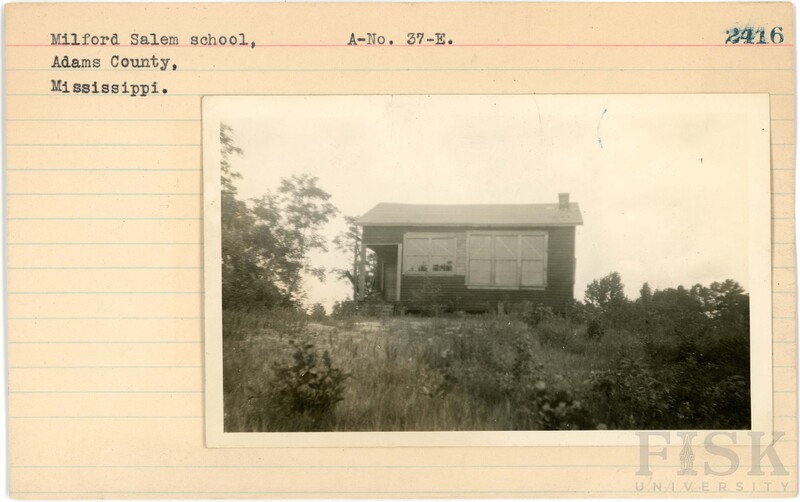 Milford Salem school, A-No. 37-E.
Adams County,
Mississippi.
FISK
UNIVERSITY